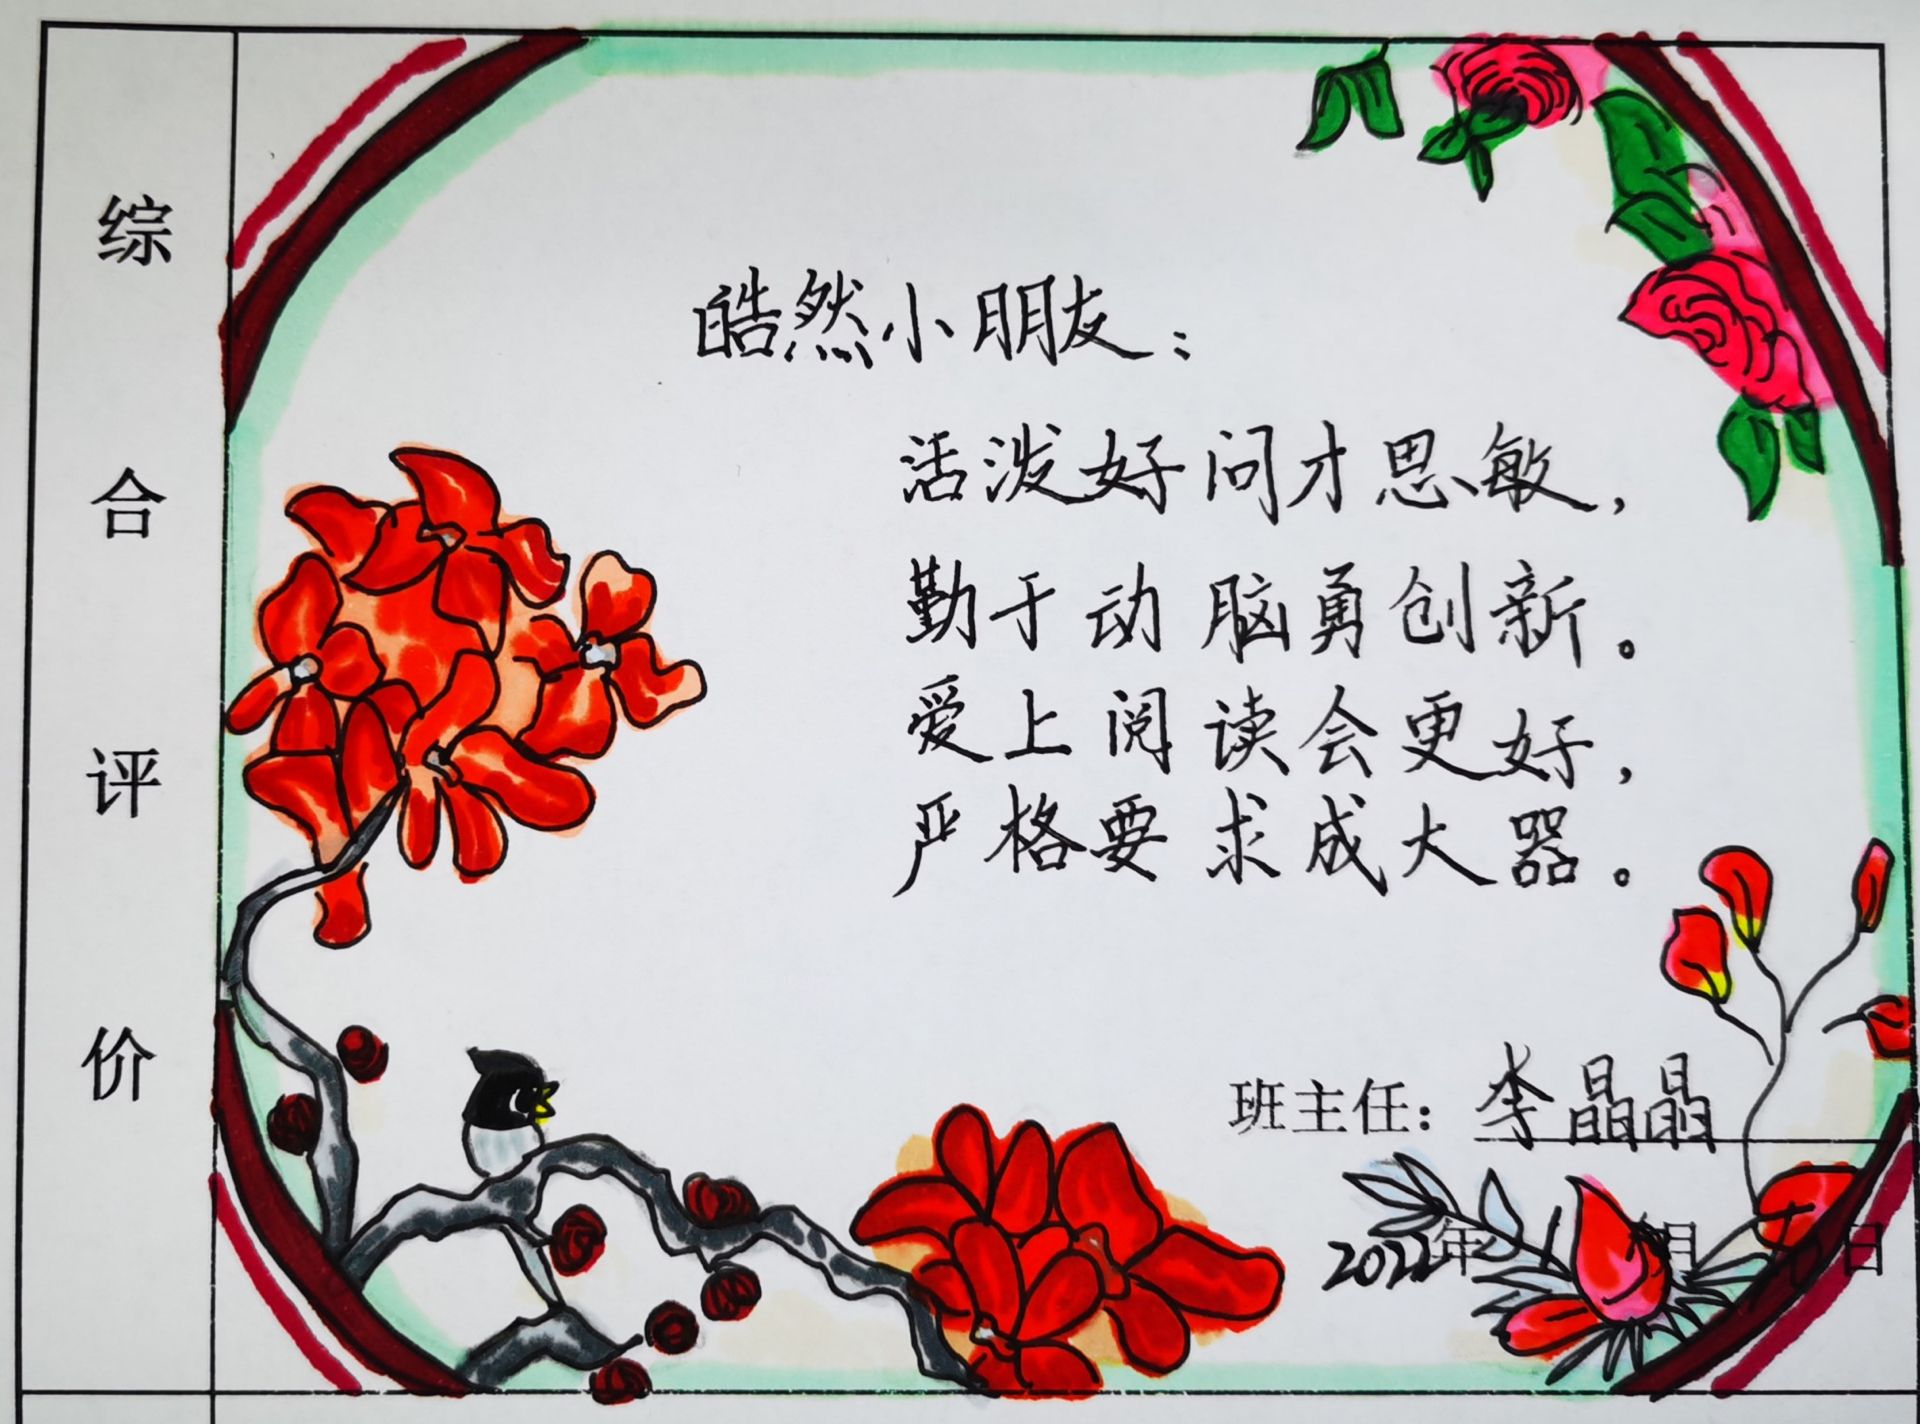 综合评价
皓然小朋友：
活泼好问才思敏，
勤于动脑勇创新。
爱上阅读会更好，
严格要求成大器。
班主任：李晶晶
2022年1月 日